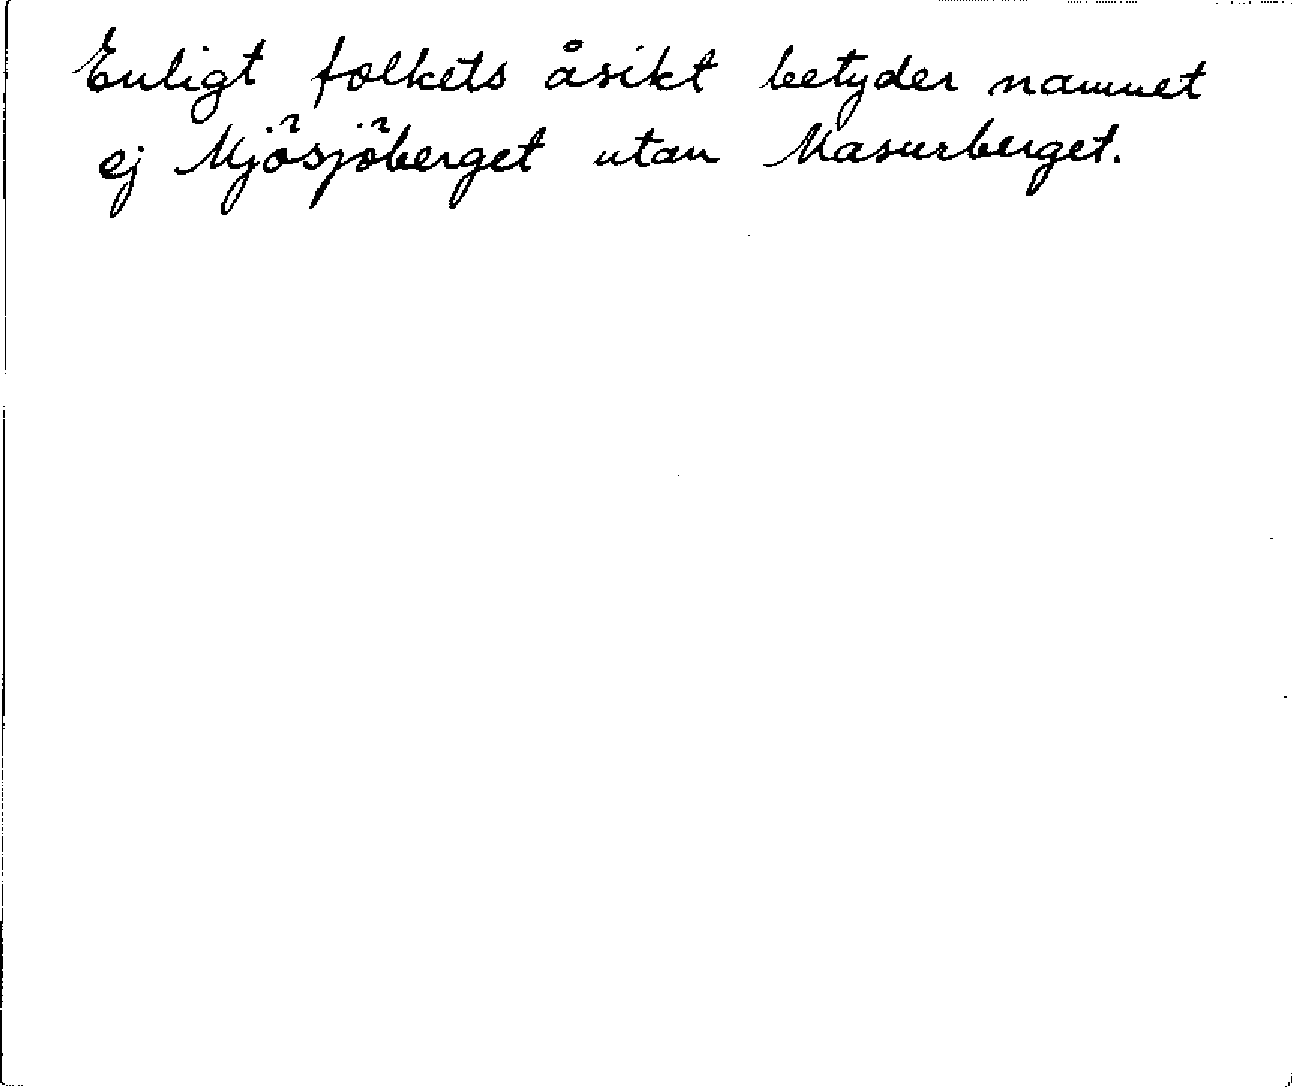 Enligt folkets åsikt betyder namnet
ej Mjösjöberget utan Masurberget.